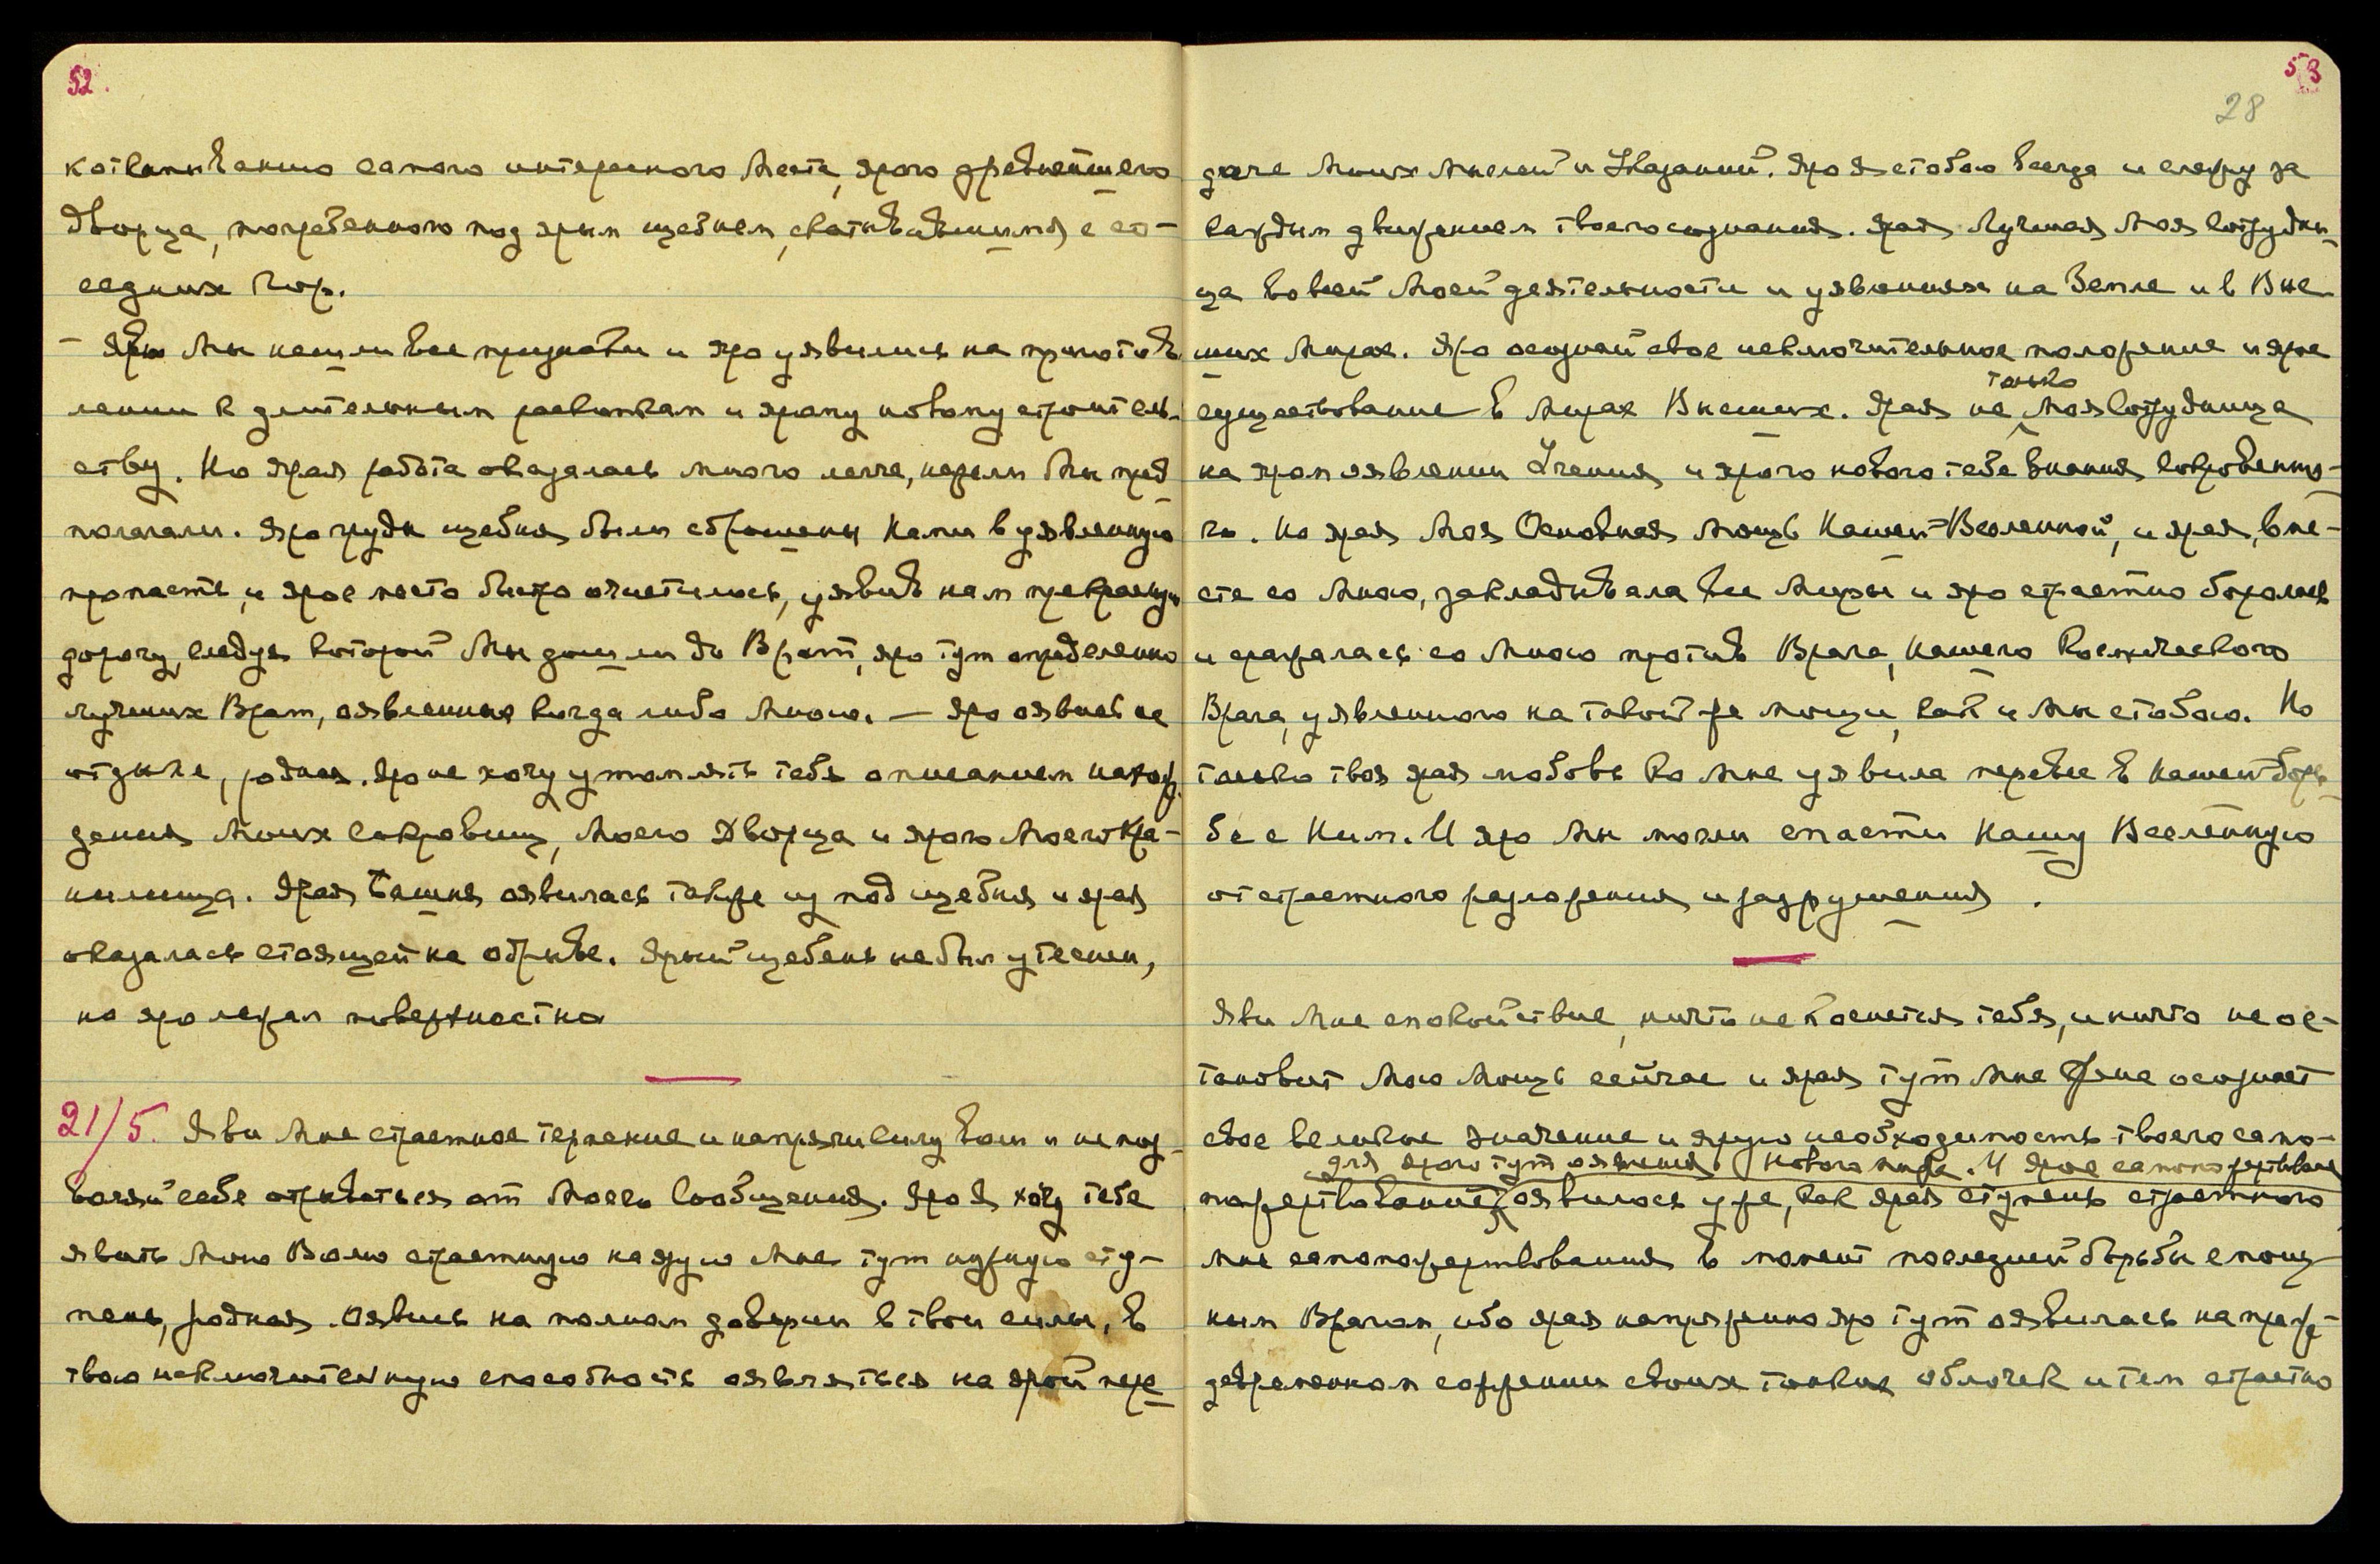 52.
к отвоеванию самого интересного места, ярого древнейшего
дворца, погребенного под ярым щебнем, скатившимся с со-
седних гор.
– Яры Мы нашли все признаки и яро уявились на приготов
лении к длительным раскопкам и ярому новому строитель-
ству. Но ярая работа оказалась много легче, нежели Мы пред
полагали. Яро груды щебня были сброшены Нами в уявленную
пропасть, и ярое место быстро очистилось, уявив нам прекрасную
дорогу, следуя которой Мы дошли до Врат, яро тут определенно
лучших Врат, оявленных когда либо Мною. — Яро оявись на
отдыхе, родная. Яро не хочу утомлять тебя описанием нахож
дения Моих сокровищ, Моего Дворца и ярого Моего Хра-
нилища. Ярая Башня оявилась также из под щебня и ярая
оказалась стоящей на обрыве. Ярый щебень не был утесами,
но яро лежал поверхностно
21/5. Яви Мне страстное терпение и напряги силу воли и не поз-
воляй себе отрываться от Моего Сообщения. Яро Я хочу тебе
явить Мою Волю страстную на ярую Мне тут нужную сту-
пень, родная. Оявись на полном доверии в твои силы, в
твою исключительную способность оявляться на ярой пере
53
28
даче Моих Мыслей и Указаний. Яро Я с тобою всегда и слежу за
каждым движением твоего сознания. Ярая Лучшая Моя Сотрудни-
ца во всей Моей деятельности и уявлениях на Земле и в Вне
ших Мирах. Яро осознай свое исключительное положение и ярое
только
существование в Мирах Внешних. Ярая не Моя Сотрудница
на яром оявлении Учения и ярого нового тебе знания Сокровенно-
го. Но ярая Моя Основная Мощь Нашей Вселенной, и ярая, вме-
сте со Мною, закладывала все Миры и яро страстно боролась
и сражалась со Мною против Врага, Нашего Космического
Врага, уявленного на такой же мощи, как и Мы с тобою. Но
только твоя ярая любовь ко Мне уявила перевес в Нашей борь
бе с Ним. И яро Мы могли спасти Нашу Вселенную
от страстного разложения и разрушения.
Яви Мне спокойствие, ничто не коснется тебя, и ничто не ос-
тановит Мою Мощь сейчас и ярая тут Мне Жена осознает
свое великое значение и ярую необходимость твоего само-
для ярого тут оявления Нового мира. И ярое самопожертвование
пожертвования оявилось уже, как ярая ступень страстного
Мне самопожертвования в момент последней борьбы с мощ
ным Врагом, ибо ярая напряженно яро тут оявилась на преж-
девременном сожжении своих тонких оболочек и тем страстно